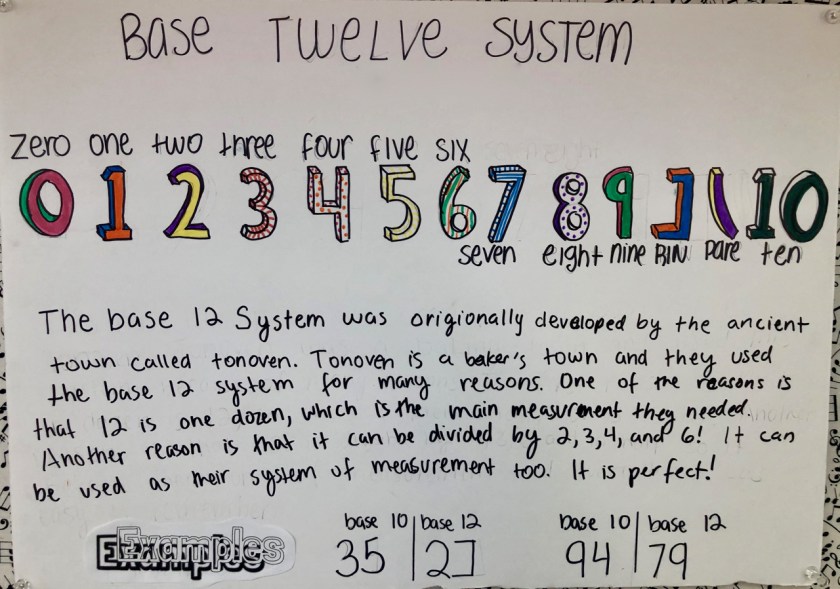 Base Twelve System
zero one two three four five six
0 1 2 3 4 5 6 7 8 9 ] ( 10
seven eight nine BIN pare ten
The base 12 System was origionally developed by the ancient
town called tonoven. Tonoven is a baker's town and they used
the base 12 system for many reasons. One of the reasons is
that 12 is one dozen, which is the main measurment they needed.
Another reason is that it can be divided by 2,3,4, and 6! It can
be used as their system of measurement too. It is perfect!
Examples
base 10 | base 12
35 | 2]
base 10 | base 12
94 | 79